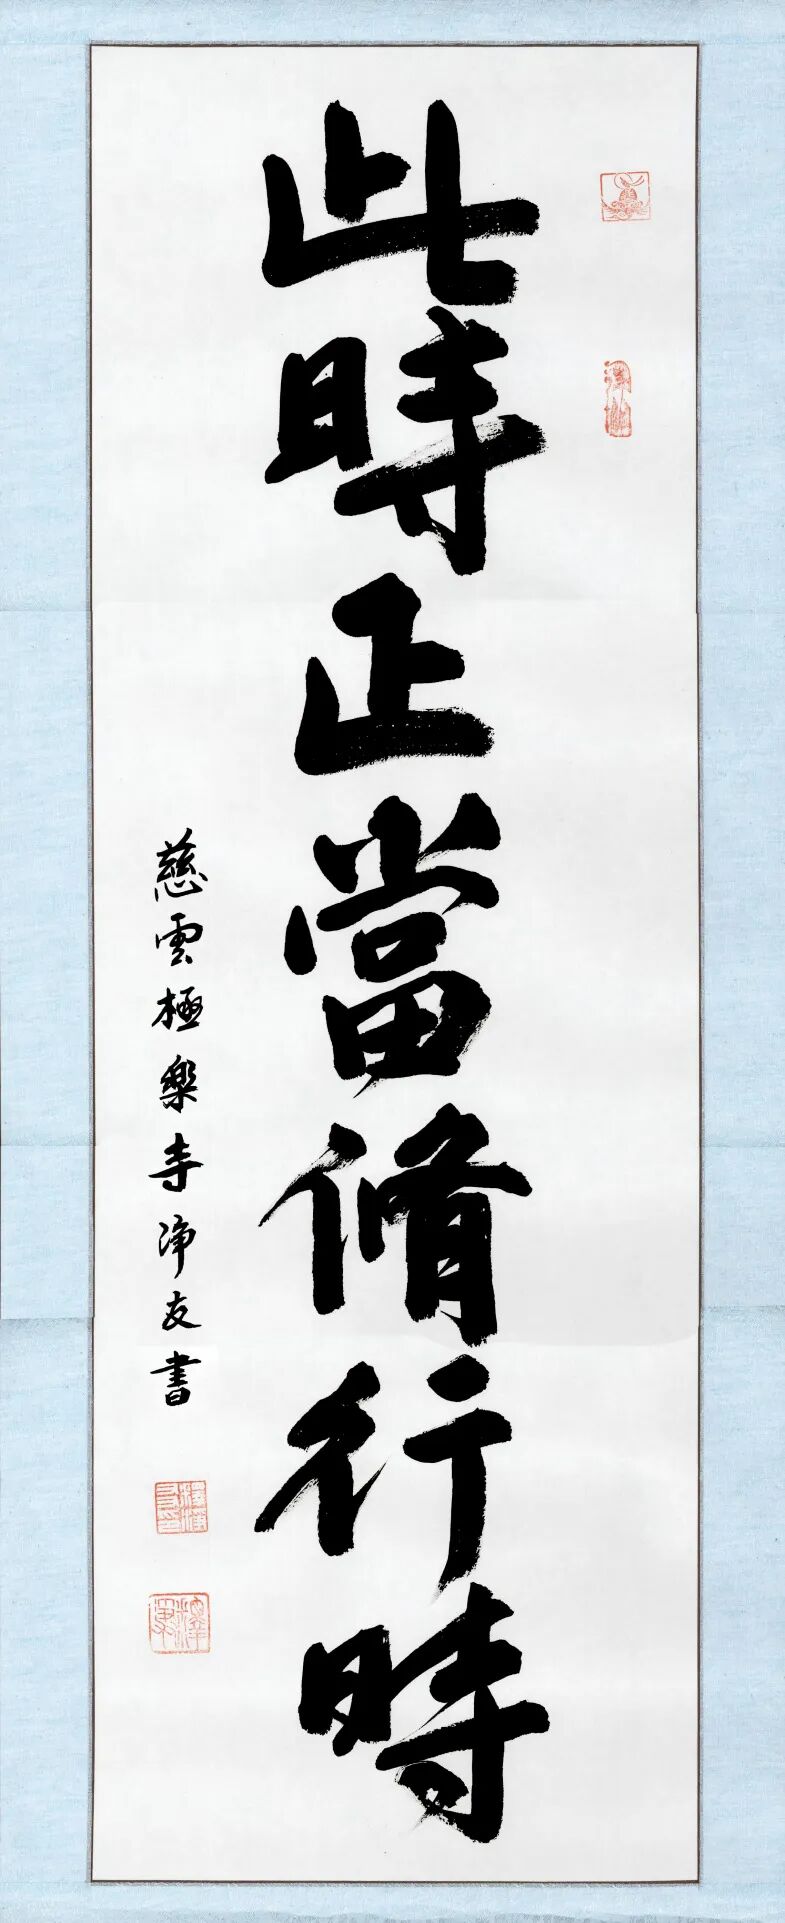 此時正當脩行時
慈雲極樂寺净友書